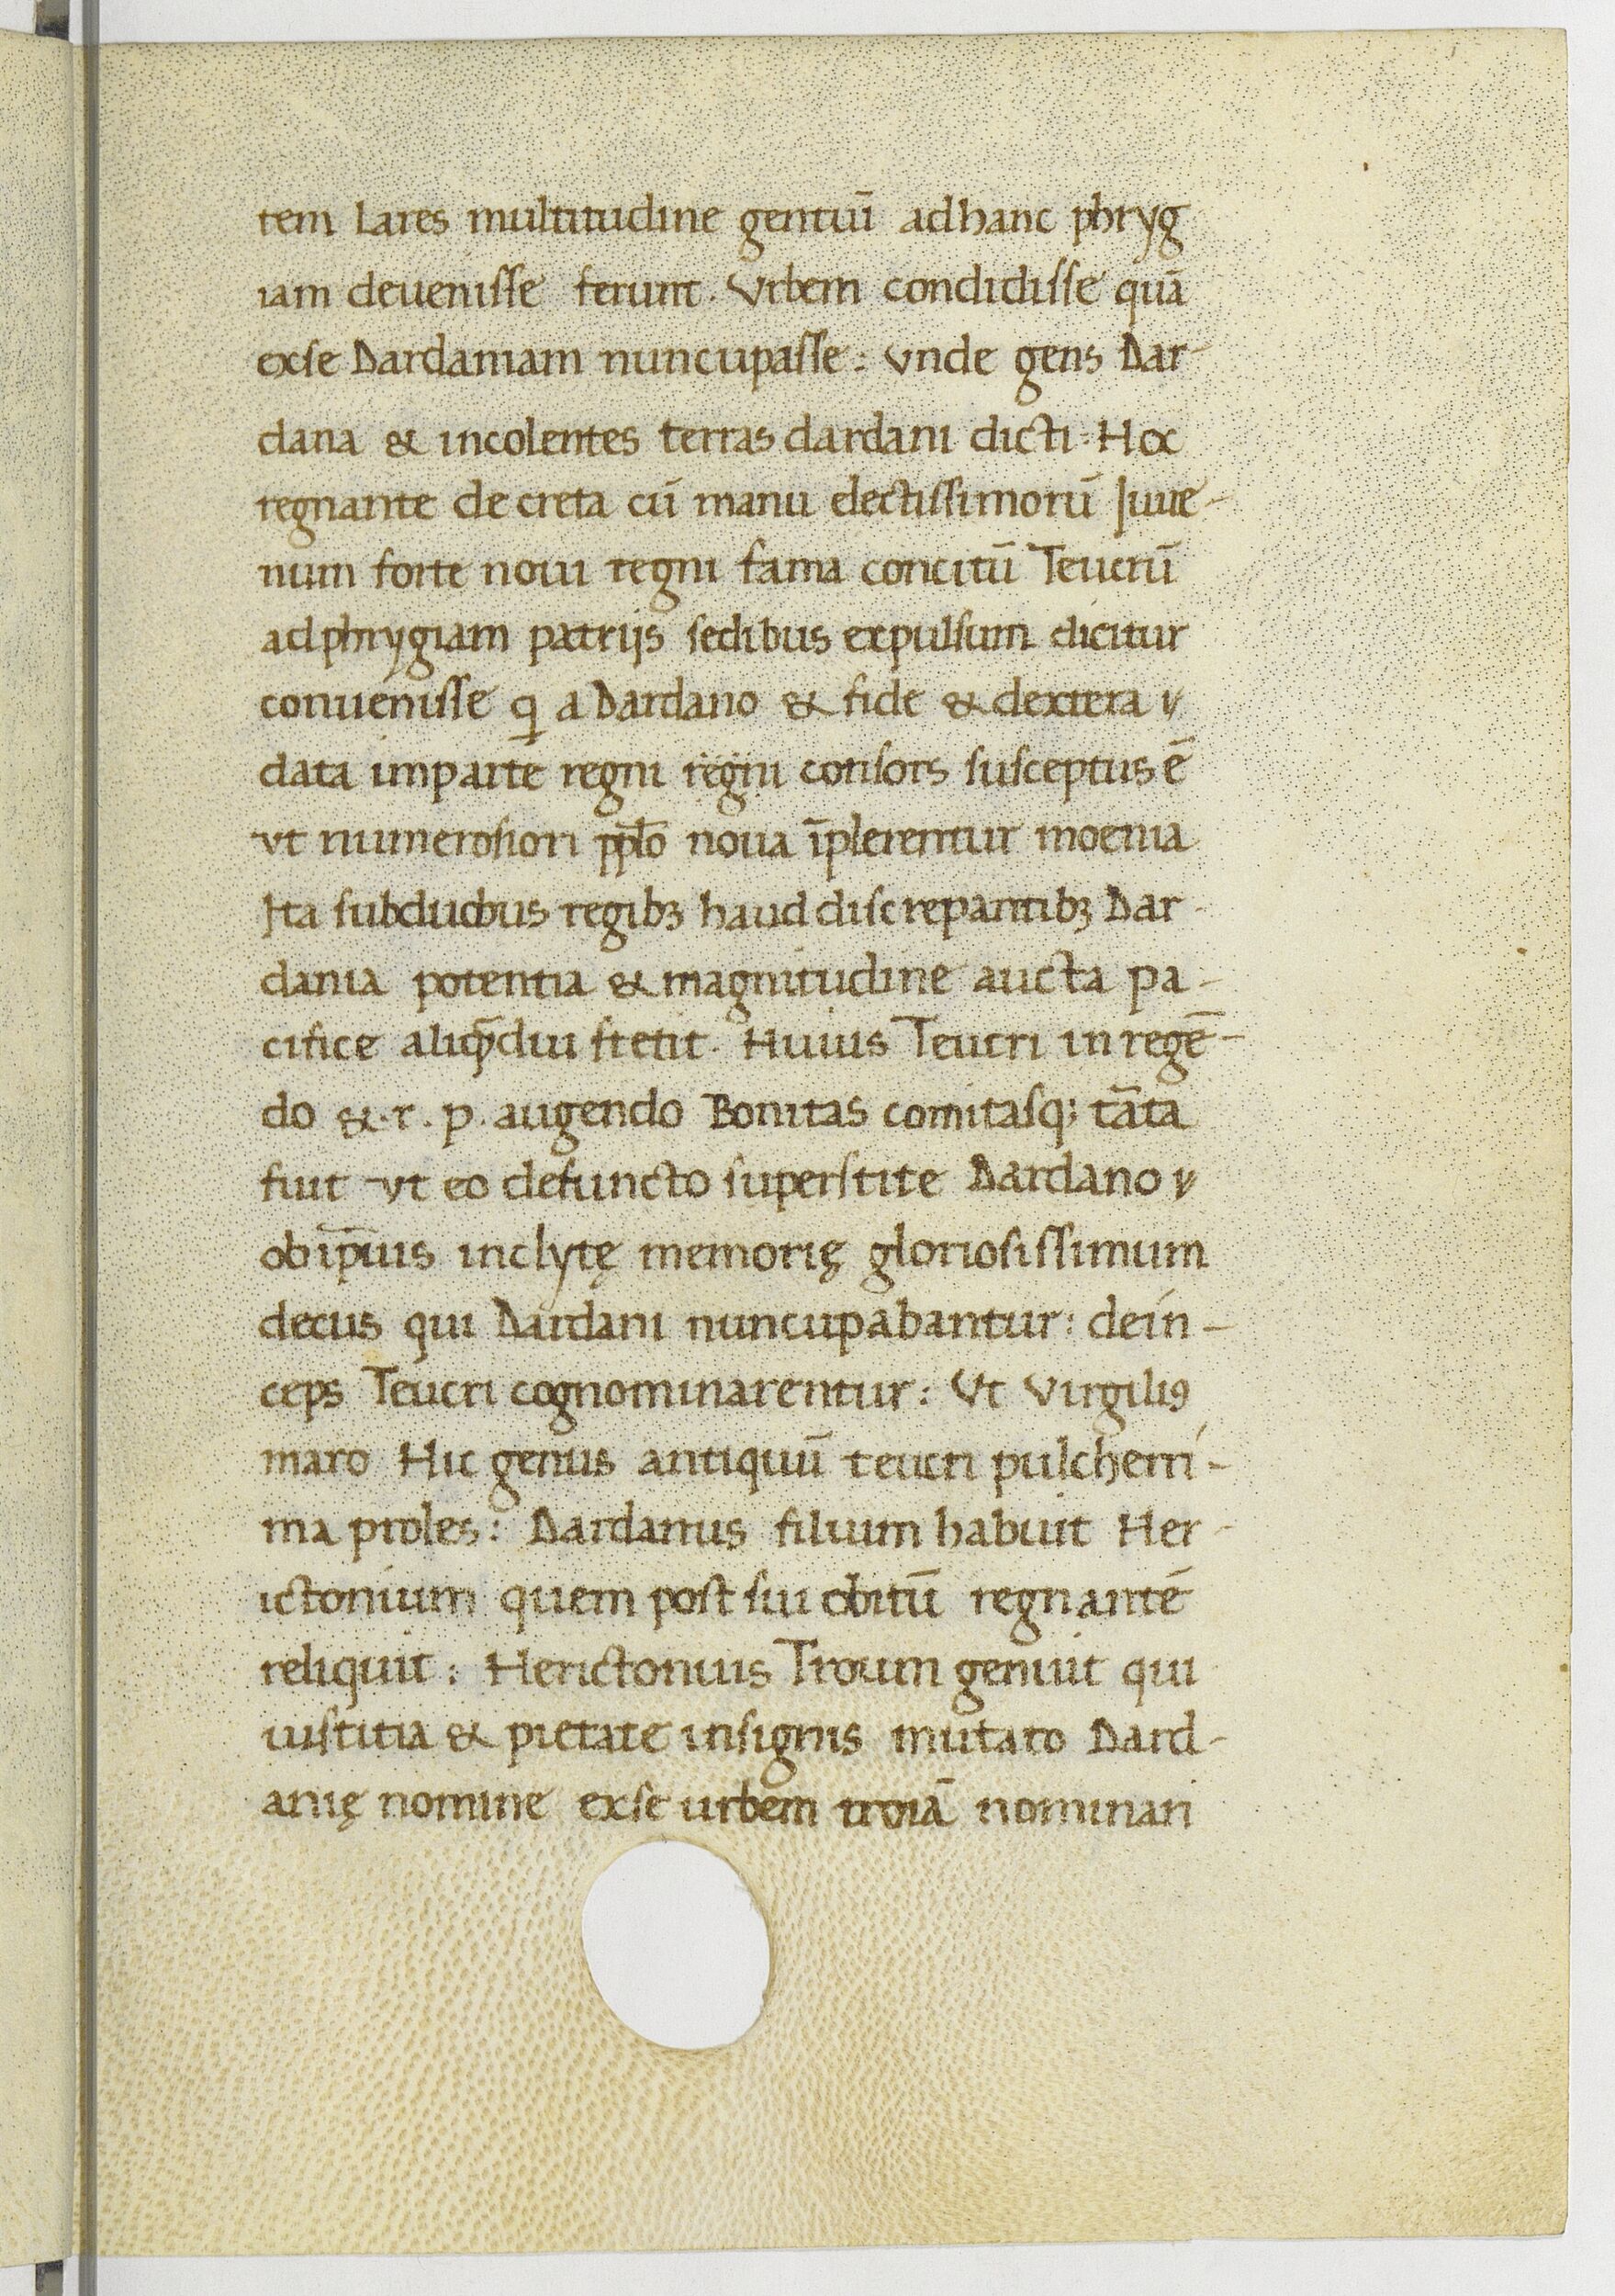 tem Lares multitudine gentiū ad hanc phryg
iam deuenisse ferunt. Vrbem condidisse quā
ex se Dardaniam nuncupasse: vnde gens Dar-
dana & incolentes terras dardani dicti: Hoc
regnante de creta cū manu electissimorū Iuue-
num forte noui regni fama concitū Teucrū
ad phrygiam patrijs sedibus expulsum dicitur
conuenisse q a Dardano & fide & dextera
data imparte regni regni consors susceptus ē
vt numerosiori pplō noua īplerentur moenia
Ita sub duobus regibꝫ haud discrepantibꝫ Dar-
dania potentia & magnitudine aucta pa-
cifice aliqādiu stetit. Huius Teucri in regē-
do & .r. p. augendo Bonitas comitasq; tāta
fuit vt eo defuncto superstite Dardano
ob ip̄ius inclytę memorię gloriosissimum
decus qui Dardani nuncupabantur: dein-
ceps Teucri cognominarentur: Vt Virgiliꝯ
maro Hic genus antiquū teucri pulcherri-
ma proles: Dardanus filium habuit Her-
ictonium quem post sui obitū regnantē
reliquit: Herictonius Troum genuit qui
iustitia & pietate insignis mutato Dard-
anię nomine ex se urbem troiā nominari